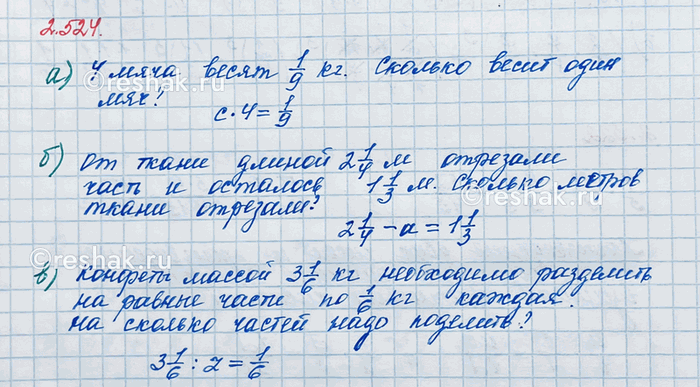 2.524.
а) 4 мяча весят 1/9 кг. Сколько весит один
мяч?
с · 4 = 1/9
б) от ткани длиной 2 1/4 м отрезали
часть и осталось 1 1/3 м. Сколько метров
ткани отрезали?
2 1/4 - а = 1 1/3
в) Конфеты массой 3 1/6 кг необходимо разделить
на равные части по 1/6 кг каждая.
на сколько частей надо поделить?
3 1/6 : z = 1/6
reshak.ru
reshak.ru
reshak.ru